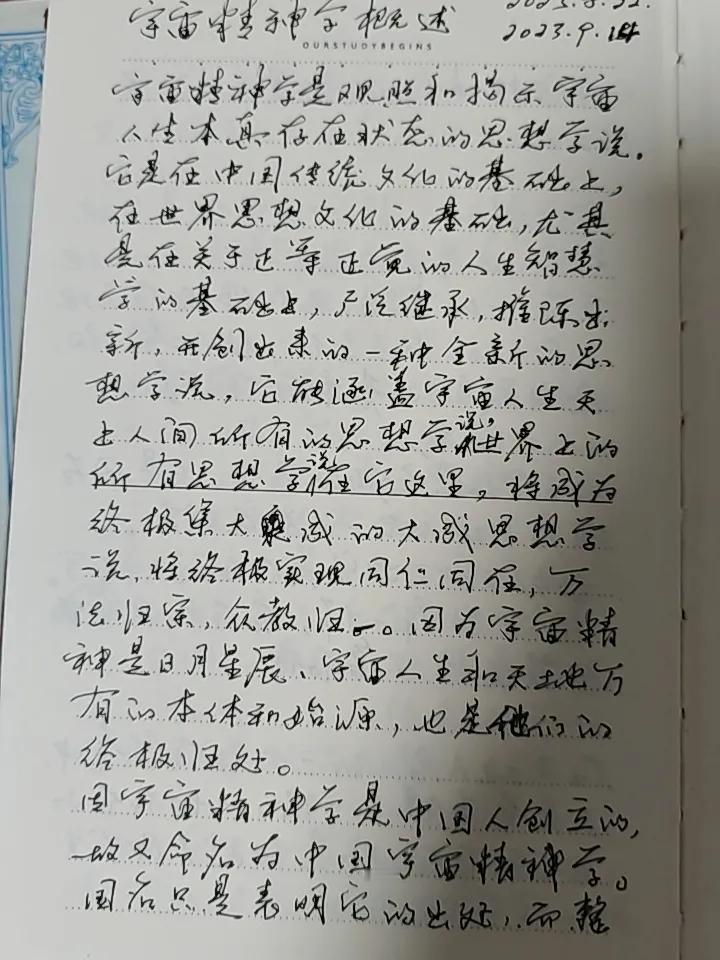 宇宙精神学概述
2023.8.22.
2023.9.1
OURSTUDYBEGINS
宇宙精神学是观照和揭示宇宙
人生本真存在状态的思想学说。
它是在中国传统文化的基础上,
在世界思想文化的基础,尤其
是在关于正等正觉的人生智慧
学的基础上,广泛继承,推陈出
新,开创出来的一种全新的思
想学说,它能涵盖宇宙人生天
上人间所有的思想学说,世界上的
所有思想学说在它这里,将成为
终极集大成的大成思想学
说,将终极实现同仁同在,万
法归宗,众教归一。因为宇宙精
神是日月星辰、宇宙人生和天地万
有的本体和始源,也是他们的
终极归处。
因宇宙精神学是中国人创立的,
故又命名为中国宇宙精神学。
国名只是表明它的出处,而整